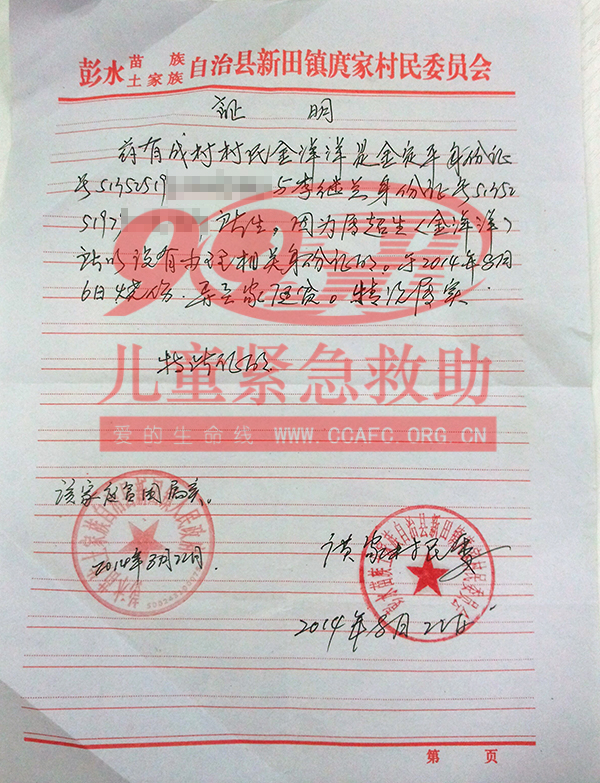 彭水苗族土家族自治县新田镇庹家村民委员会
证 明
兹有成村村民金洋洋是金定平身份证
号51352519 与李继兰身份证号51352
5197 所生。因为属超生(金洋洋)
所以没有办理相关身份证明。于2014年8月
6日烧伤.导至家庭贫。情况属实.
特此证明
99公
儿童紧急救助
爱的生命线 WWW.CCAFC.ORG.CN
该家庭贫困属实。
2014年8月22日.
家村民委
2014年8月22日
第 页